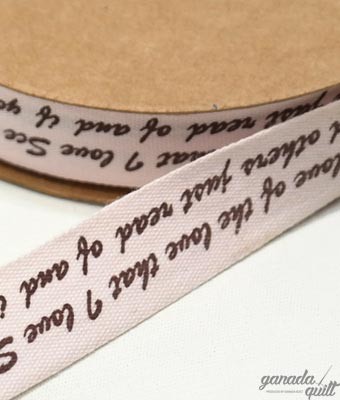 that I love See
just read of and if yo
love of the love that I love S
others just read of and i
ganada
quilt